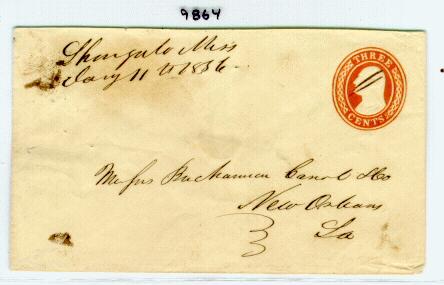 9864
Shongalo Miss
Jany 11th 1856
THREE
CENTS
Messrs Buchannan Carrol & Co
New Orleans
La